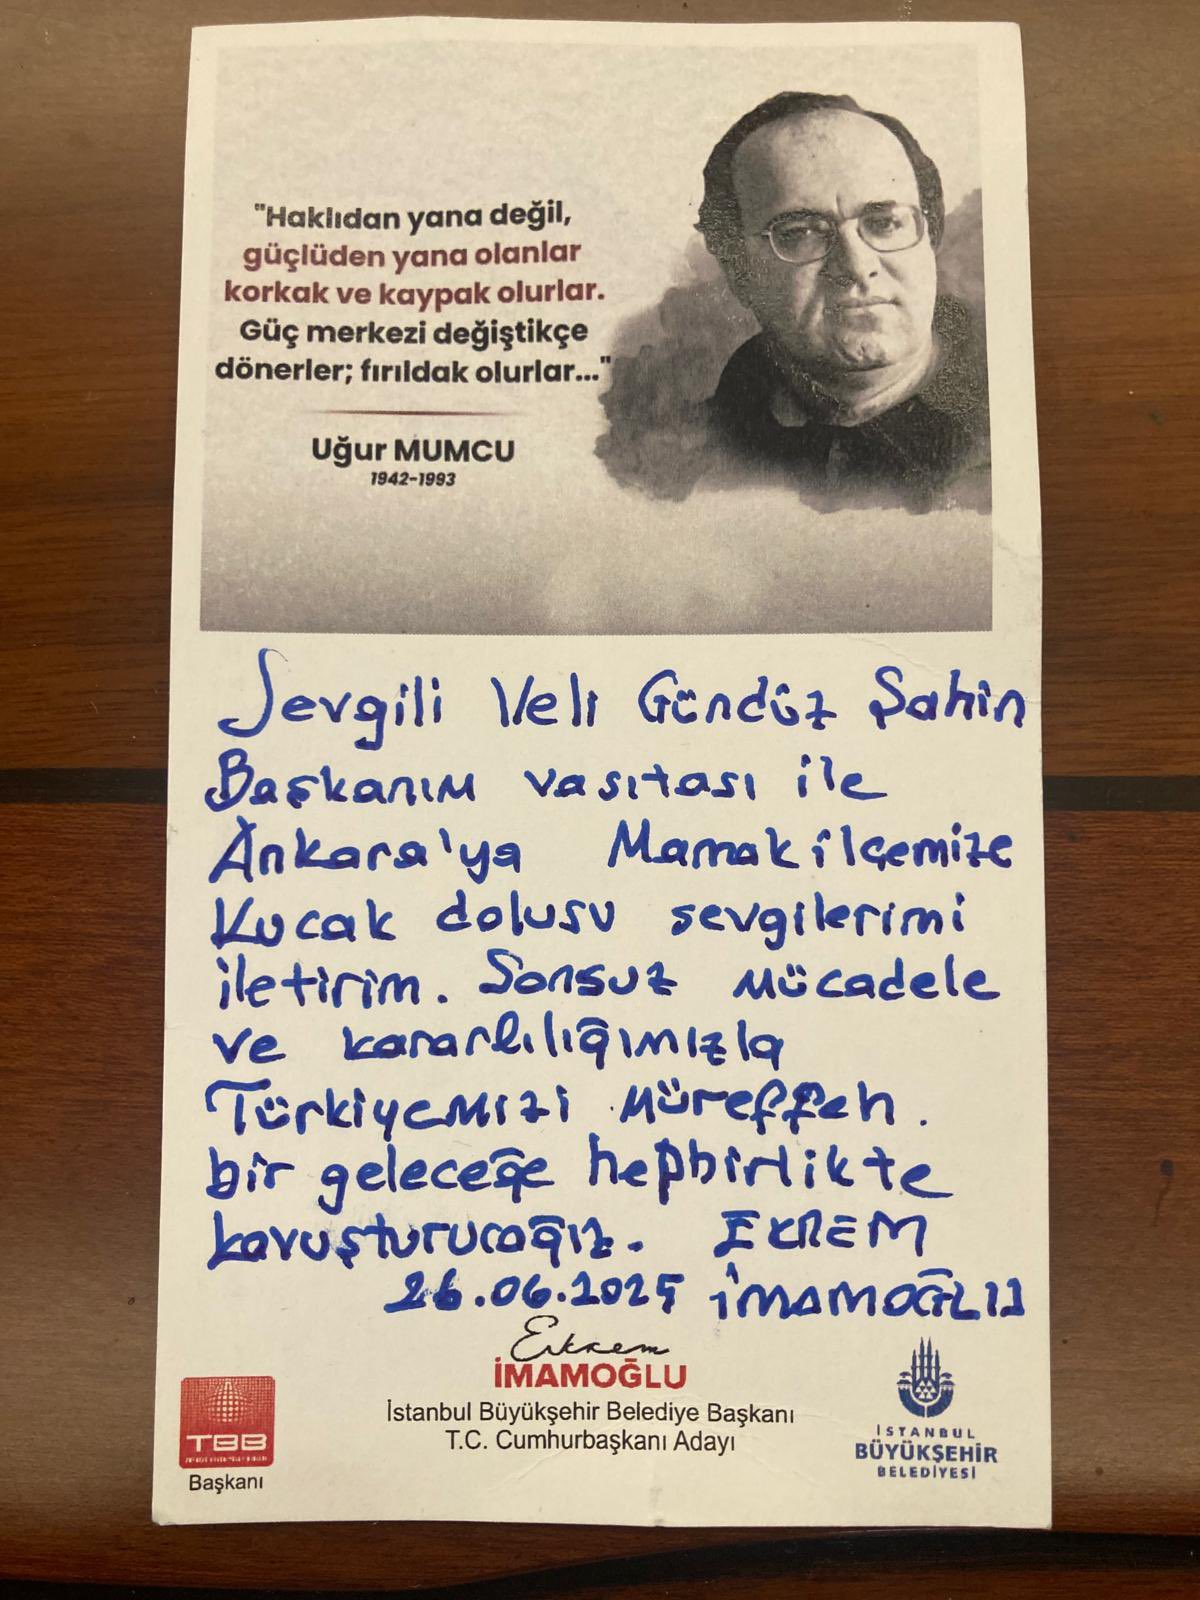 "Haklıdan yana değil,
güçlüden yana olanlar
korkak ve kaypak olurlar.
Güç merkezi değiştikçe
dönerler; fırıldak olurlar..."
Uğur MUMCU
1942-1993
Sevgili Veli Gündüz Şahin
Başkanım vasıtası ile
Ankara'ya Mamak ilçemize
Kucak dolusu sevgilerimi
iletirim. Sonsuz mücadele
ve kararlılığımızla
Türkiyemizi müreffeh.
bir geleceğe hepbirlikte
kavuşturucağız. EKREM
26.06.2025 İMAMOĞLU
Ekrem
İMAMOĞLU
İstanbul Büyükşehir Belediye Başkanı
T.C. Cumhurbaşkanı Adayı
TBB
Başkanı
İSTANBUL
BÜYÜKŞEHİR
BELEDİYESİ